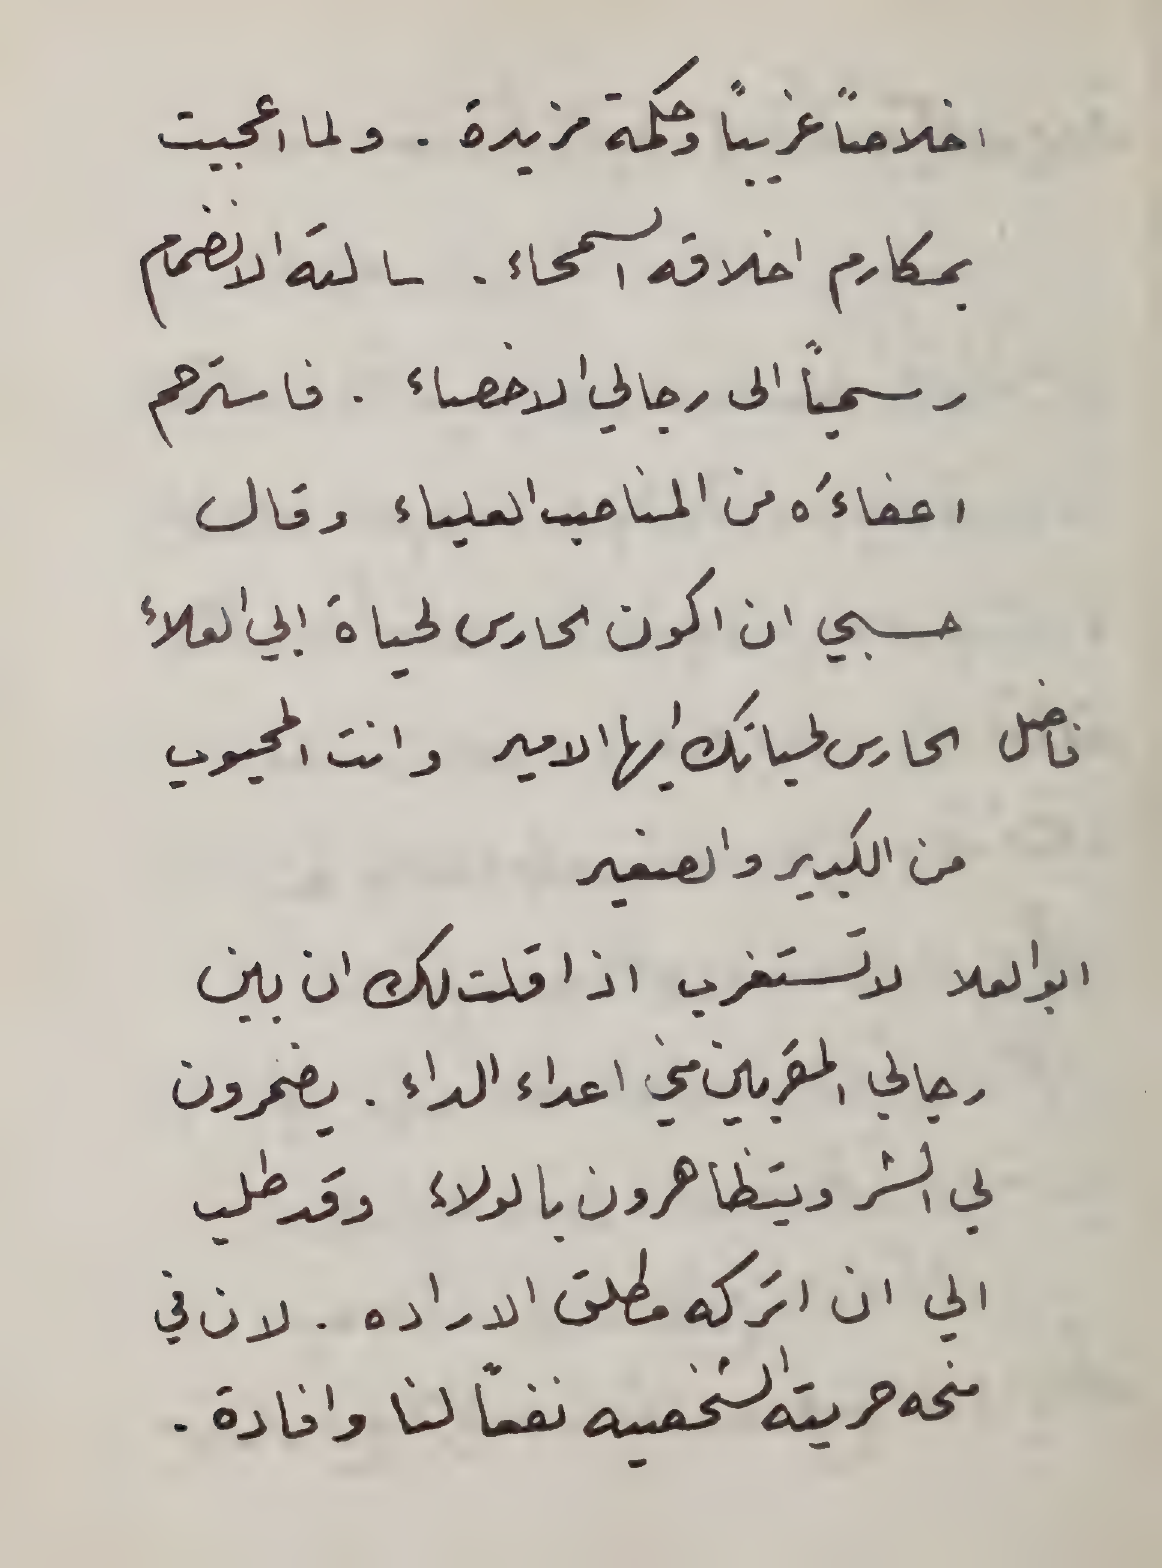 اخلاصاً غريباً وحكمة مزيدة . ولما اعجبت
بمكارم اخلاقه السمحاء . سالته الانضمام
رسمياً الى رجالي الاخصاء . فاسترحم
اعفاءَه من المناصب العلياء وقال
حسبي ان اكون الحارس لحياة ابي العلاء
فاضل الحارس لحياتك ايها الامير وانت المحبوب
من الكبير والصغير
ابو العلا لا تستغرب اذا قلت لك ان بين
رجالي المقربين مني اعداء الداء . يضمرون
لي الشر ويتظاهرون بالولاء وقد طلب
الي ان اتركه مطلق الاراده . لان في
منحه حريته الشخصيه نفعاً لنا وافادة .